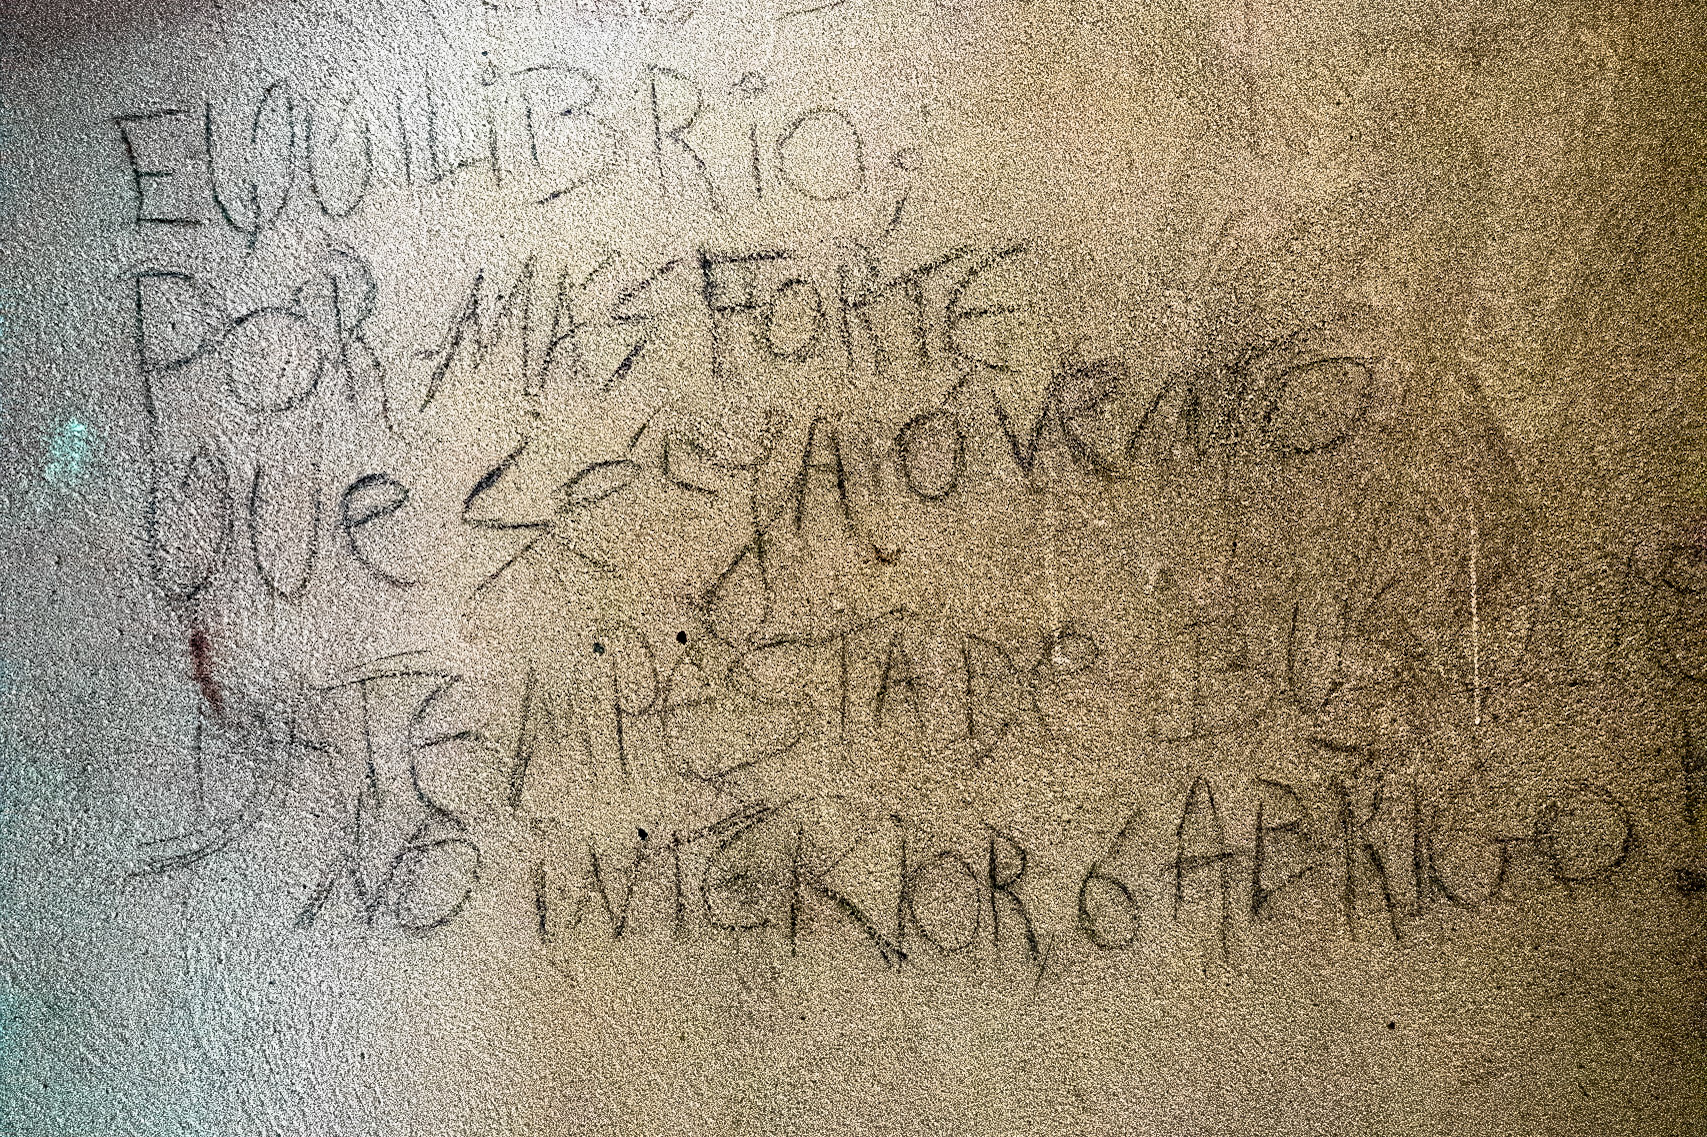 EQUiLiBRiO;
POR MAS FORTE
QUE SEJA O VENTO
D TEMPESTADE BUS
NO INTERIOR O ABRIGO